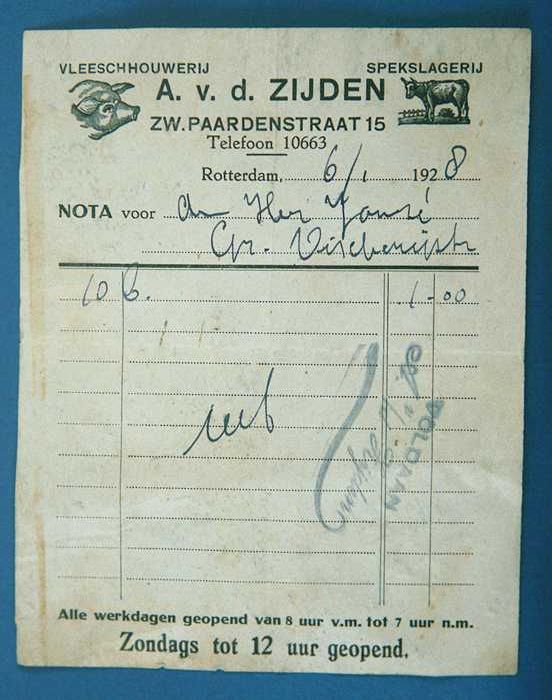 VLEESCHHOUWERIJ SPEKSLAGERIJ
A. v. d. ZIJDEN
ZW. PAARDENSTRAAT 15
Telefoon 10663
Rotterdam, 6/1 1928
NOTA voor den Heer
Gr.
10 1-00
VOLDAAN
Alle werkdagen geopend van 8 uur v.m. tot 7 uur n.m.
Zondags tot 12 uur geopend.